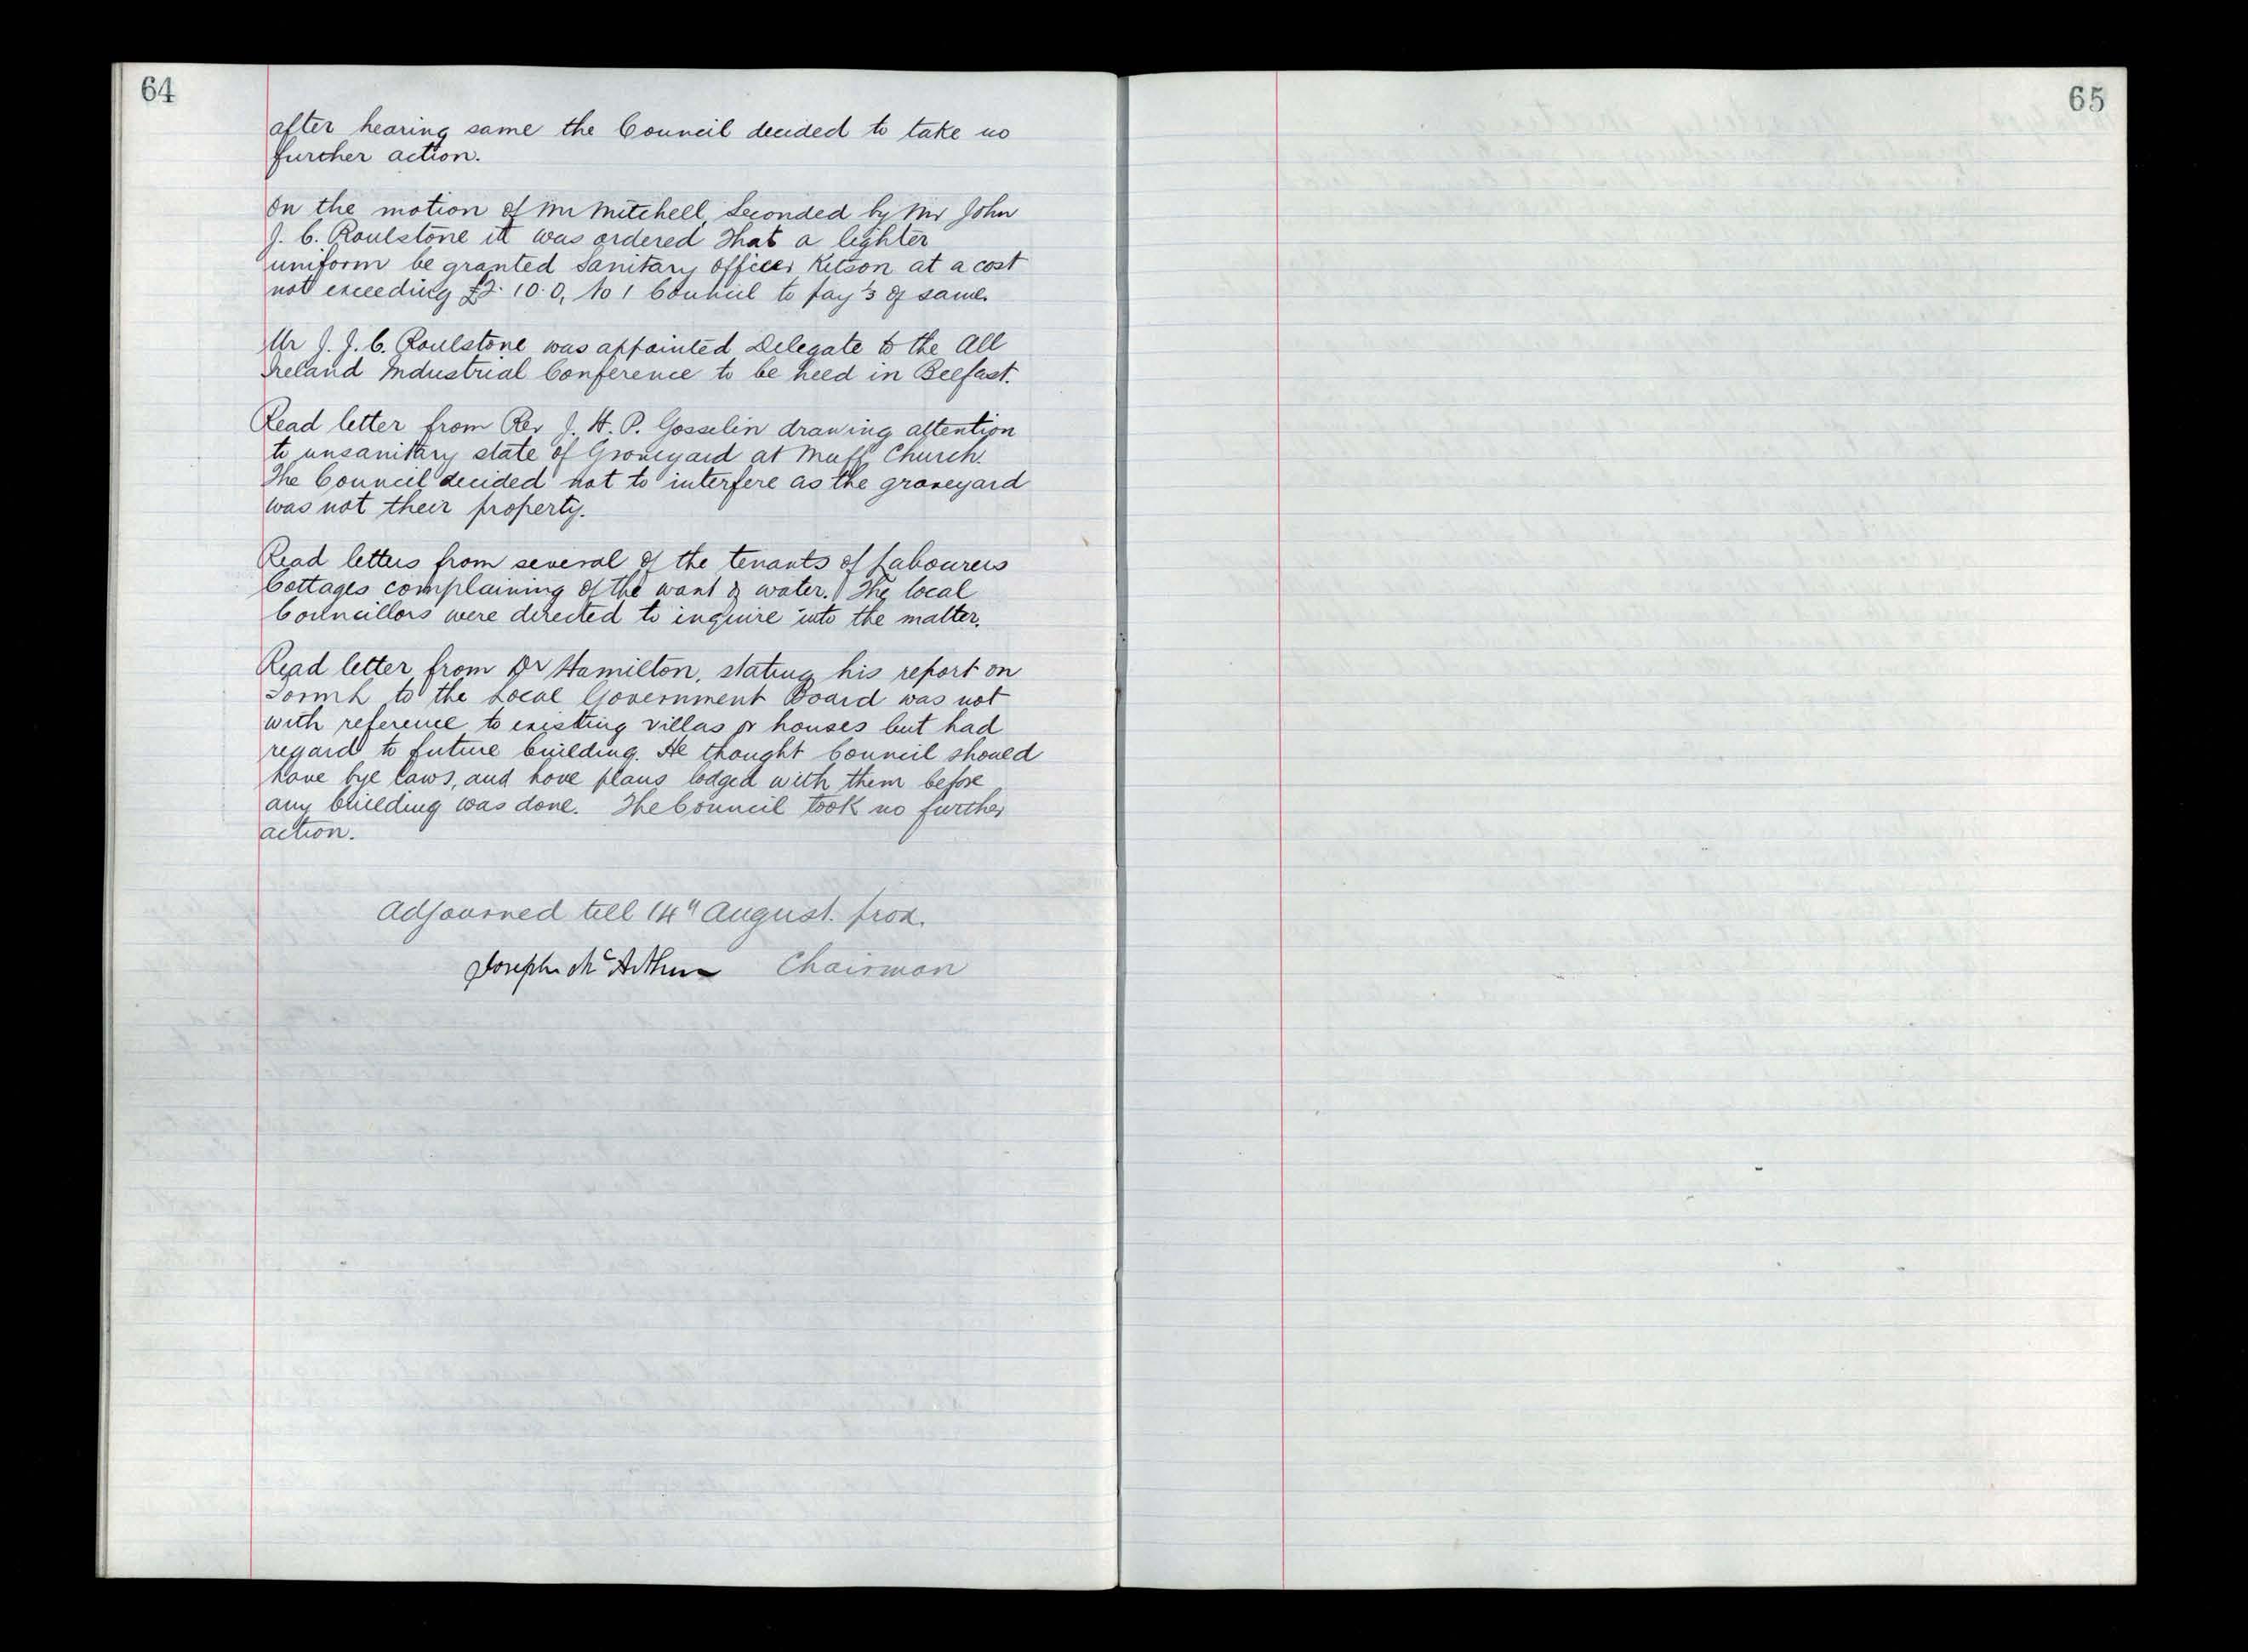 64
after hearing same the Council decided to take no
further action.
On the motion of Mr Mitchell, Seconded by Mr John
J. C. Roulstone it was ordered that a lighter
uniform be granted Sanitary Officer Kitson at a cost
not exceeding £2. 10. 0, No 1 Council to pay 1/3 of same.
Mr J. J. C. Roulstone was appointed Delegate to the All
Ireland Industrial Conference to be held in Belfast.
Read letter from Rev J. H. P. Gosselin drawing attention
to unsanitary state of Graveyard at Muff Church.
The Council decided not to interfere as the graveyard
was not their property.
Read letters from several of the tenants of Labourers
Cottages complaining of the want of water. The local
Councillors were directed to inquire into the matter.
Read letter from Dr Hamilton, stating his report on
to the Local Government Board was not
with reference to existing villas or houses but had
regard to future building. He thought Council should
have bye laws, and have plans lodged with them before
any building was done. The Council took no further
action.
Adjourned till 14th August. prox.
Joseph McArthur Chairman
65